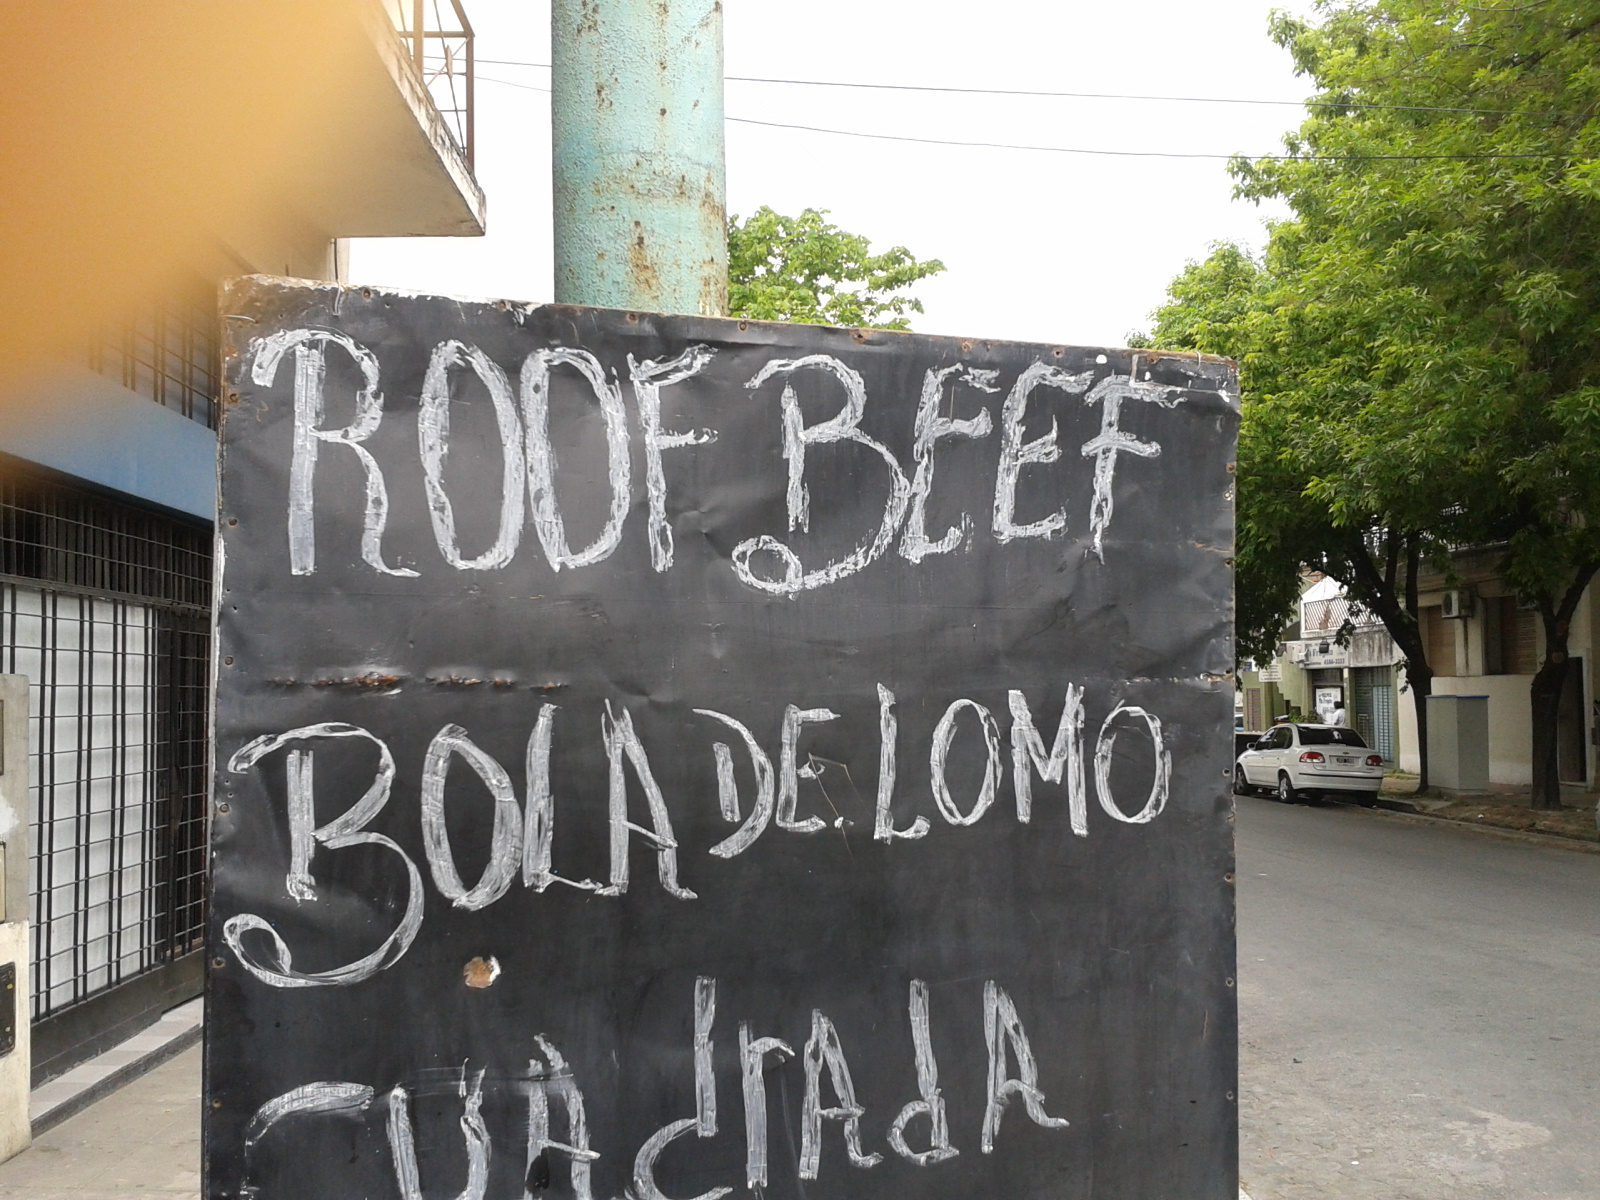 ROOF BEEF
BOLA DE LOMO
CUAdrAdA